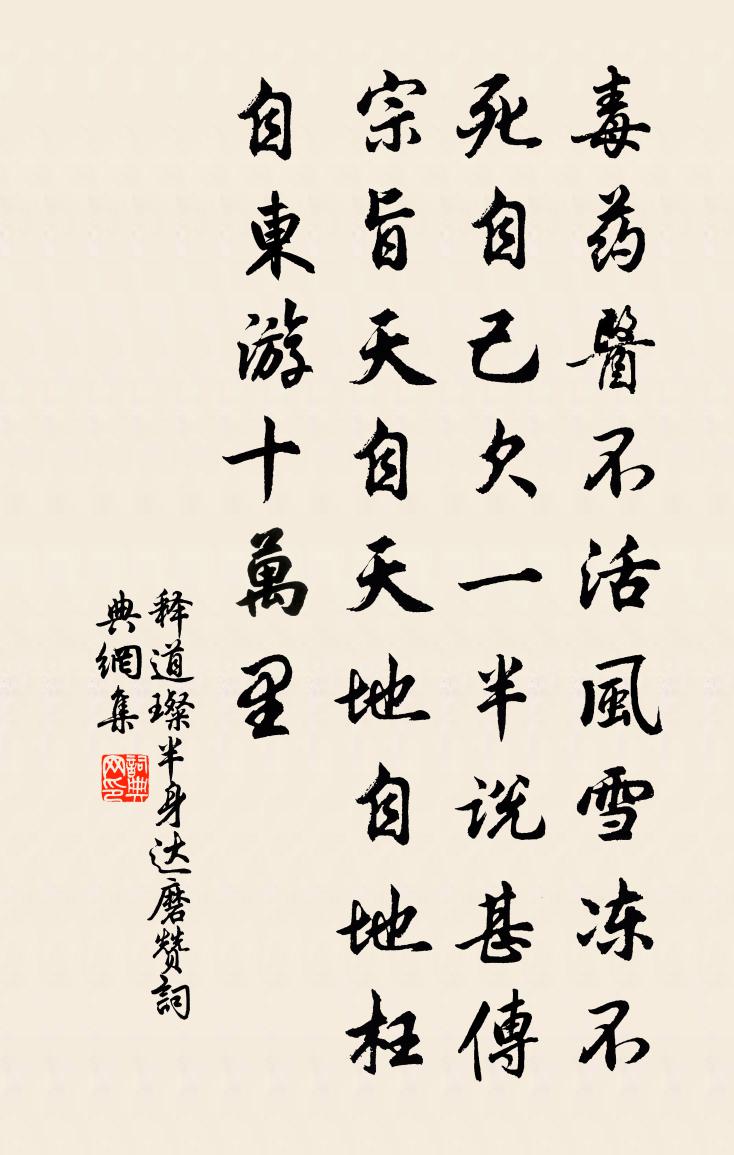 毒药醫不活風雪冻不
死自己欠一半说甚傳
宗旨天自天地自地枉
自東游十萬里
释道璨半身达磨赞詞
典網集
詞典网印